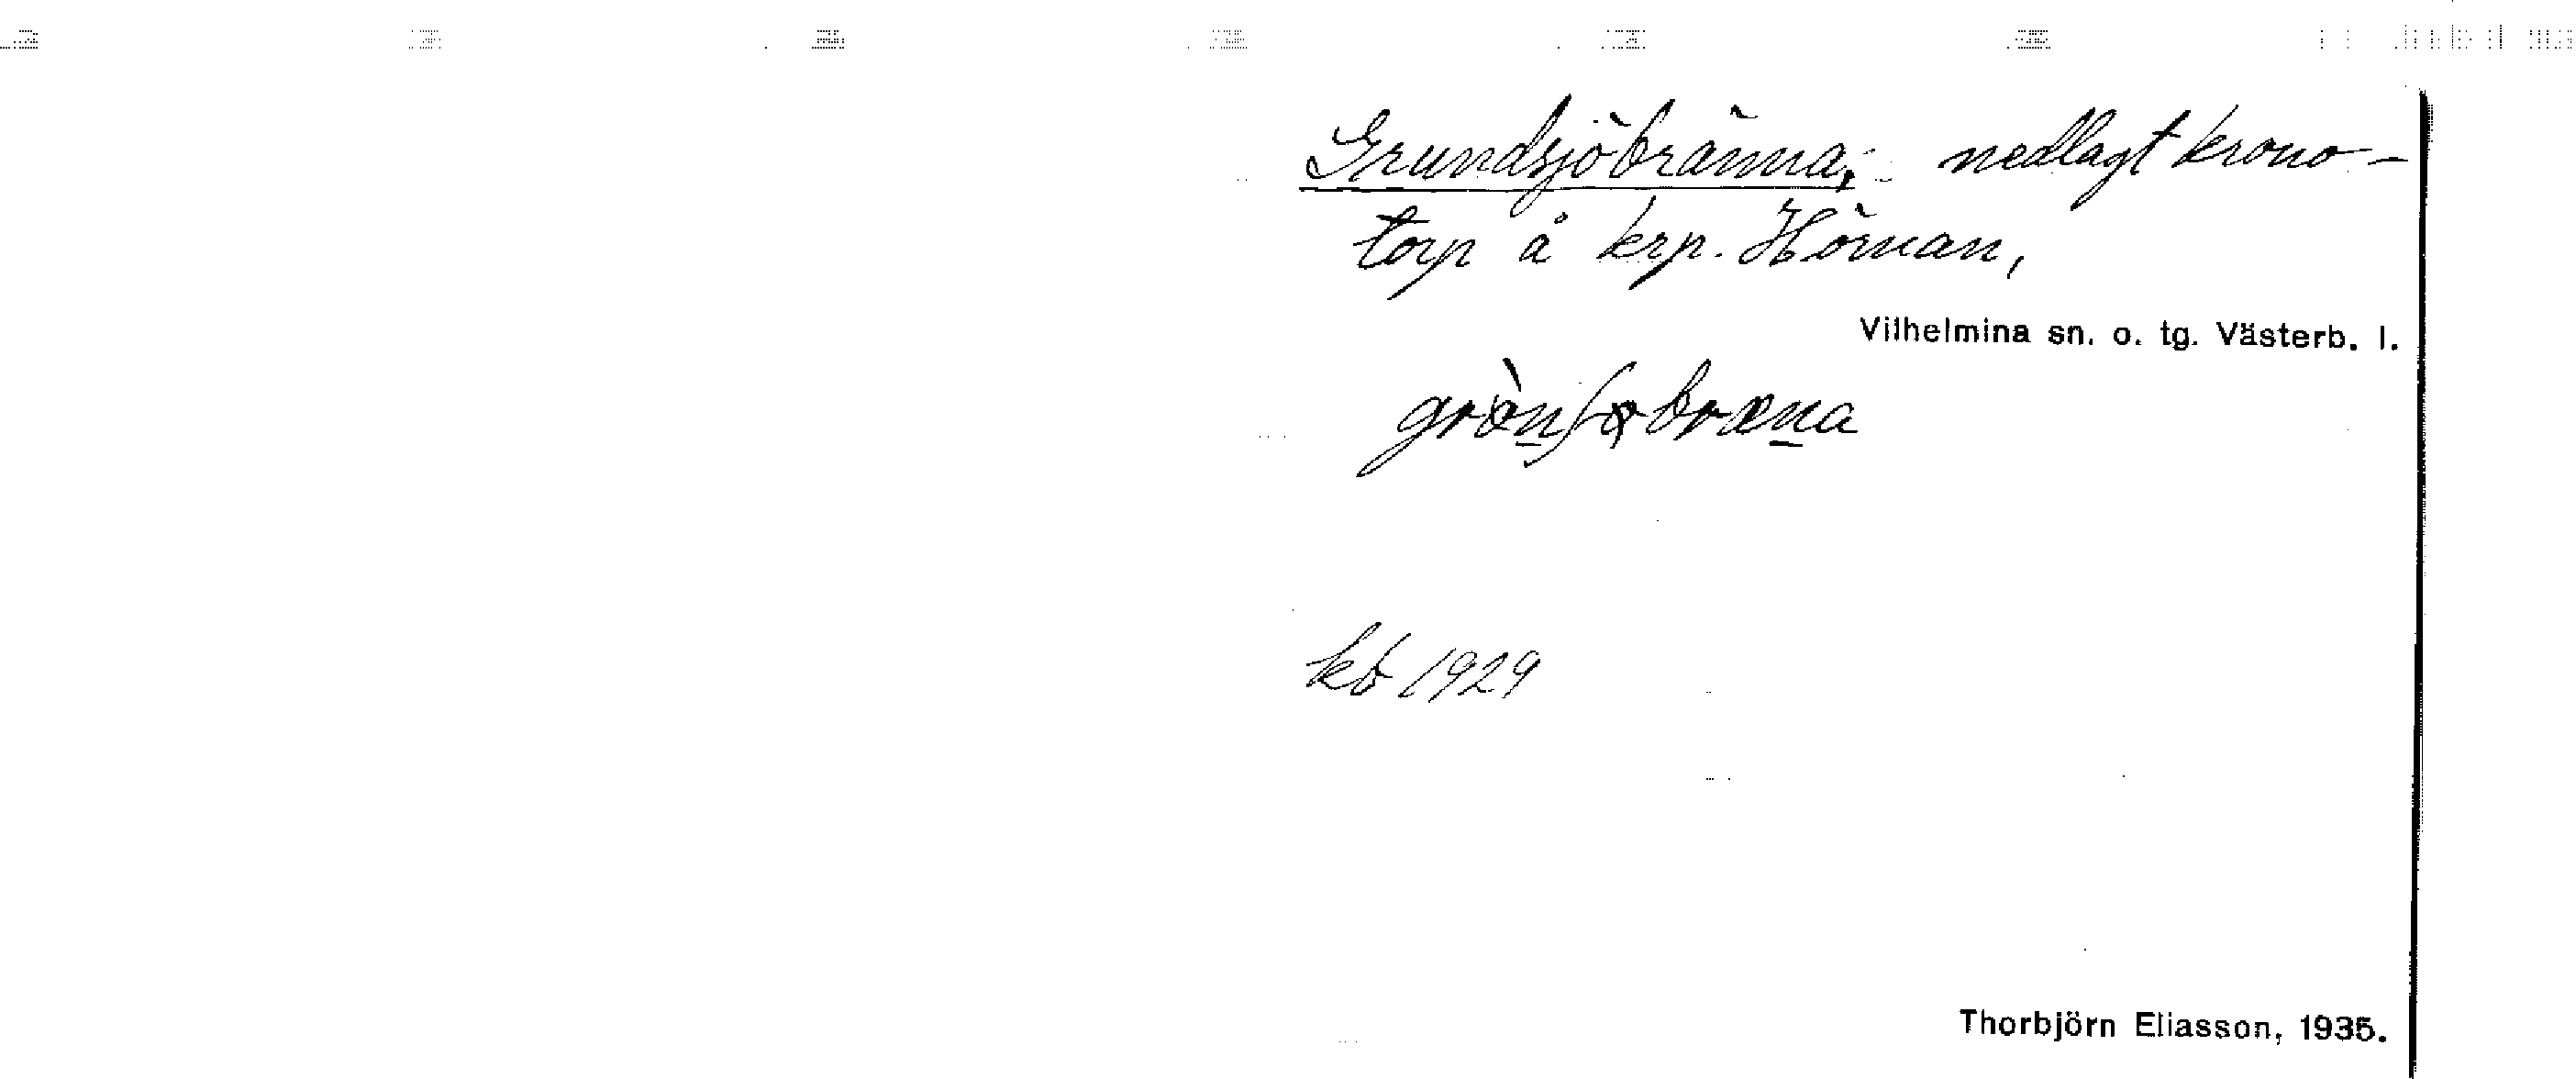 Grundsjöbränna, nedlagt krono-
torp å krp. Hörnan,
Vilhelmina sn. o. tg. Västerb. l.
kb 1929
Thorbjörn Eliasson, 1935.